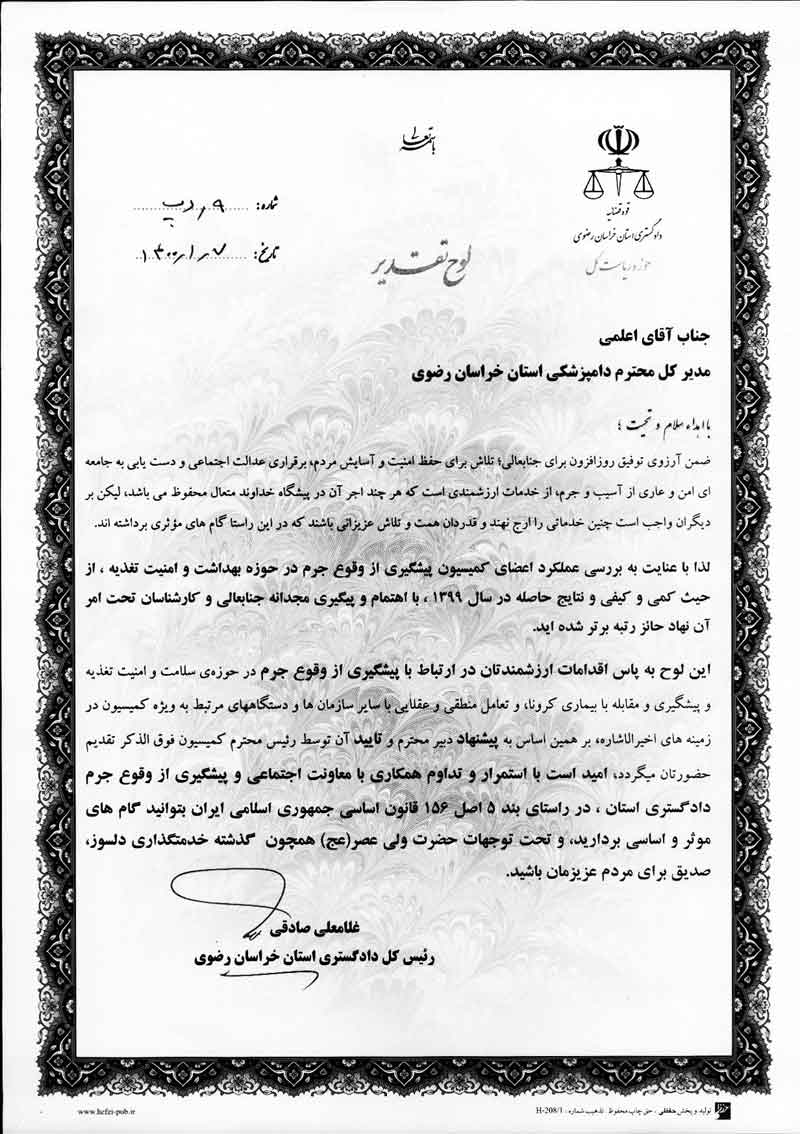 باسمه تعالی
قوه قضائیه
دادگستری استان خراسان رضوی
حوزه ریاست کل
شماره:
تاریخ: ۱۴۰۰/۱/۷
لوح تقدیر
جناب آقای اعلمی
مدیر کل محترم دامپزشکی استان خراسان رضوی
با اهداء سلام و تحیت ؛
ضمن آرزوی توفیق روزافزون برای جنابعالی؛ تلاش برای حفظ امنیت و آسایش مردم، برقراری عدالت اجتماعی و دست یابی به جامعه
ای امن و عاری از آسیب و جرم، از خدمات ارزشمندی است که هر چند اجر آن در پیشگاه خداوند متعال محفوظ می باشد، لیکن بر
دیگران واجب است چنین خدماتی را ارج نهند و قدردان همت و تلاش عزیزانی باشند که در این راستا گام های مؤثری برداشته اند.
لذا با عنایت به بررسی عملکرد اعضای کمیسیون پیشگیری از وقوع جرم در حوزه بهداشت و امنیت تغذیه ، از
حیث کمی و کیفی و نتایج حاصله در سال ۱۳۹۹ ، با اهتمام و پیگیری مجدانه جنابعالی و کارشناسان تحت امر
آن نهاد حائز رتبه برتر شده اید.
این لوح به پاس اقدامات ارزشمندتان در ارتباط با پیشگیری از وقوع جرم در حوزه‌ی سلامت و امنیت تغذیه
و پیشگیری و مقابله با بیماری کرونا، و تعامل منطقی و عقلایی با سایر سازمان ها و دستگاههای مرتبط به ویژه کمیسیون در
زمینه های اخیرالاشاره، بر همین اساس به پیشنهاد دبیر محترم و تایید آن توسط رئیس محترم کمیسیون فوق الذکر تقدیم
حضورتان میگردد، امید است با استمرار و تداوم همکاری با معاونت اجتماعی و پیشگیری از وقوع جرم
دادگستری استان ، در راستای بند ۵ اصل ۱۵۶ قانون اساسی جمهوری اسلامی ایران بتوانید گام های
موثر و اساسی بردارید، و تحت توجهات حضرت ولی عصر(عج) همچون گذشته خدمتگذاری دلسوز،
صدیق برای مردم عزیزمان باشید.
غلامعلی صادقی
رئیس کل دادگستری استان خراسان رضوی
www.hefzi-pub.ir
تولید و پخش حفظی ، حق چاپ محفوظ . تذهیب شماره : H-208/1